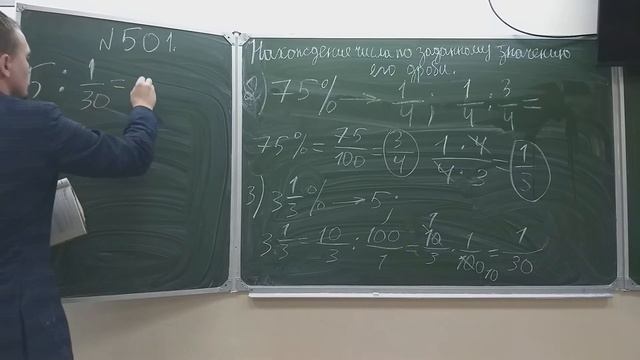 N501.
5 : 1/30 =
Нахождение числа по заданному значению
его дроби.
2) 75% → 1/4 ; 1/4 : 3/4 =
75% = 75/100 = 3/4 1·4/4·3 = 1/3
3) 3 1/3 % → 5;
3 1/3 = 10/3 : 100/1 = 10/3 · 1/100 = 1/30